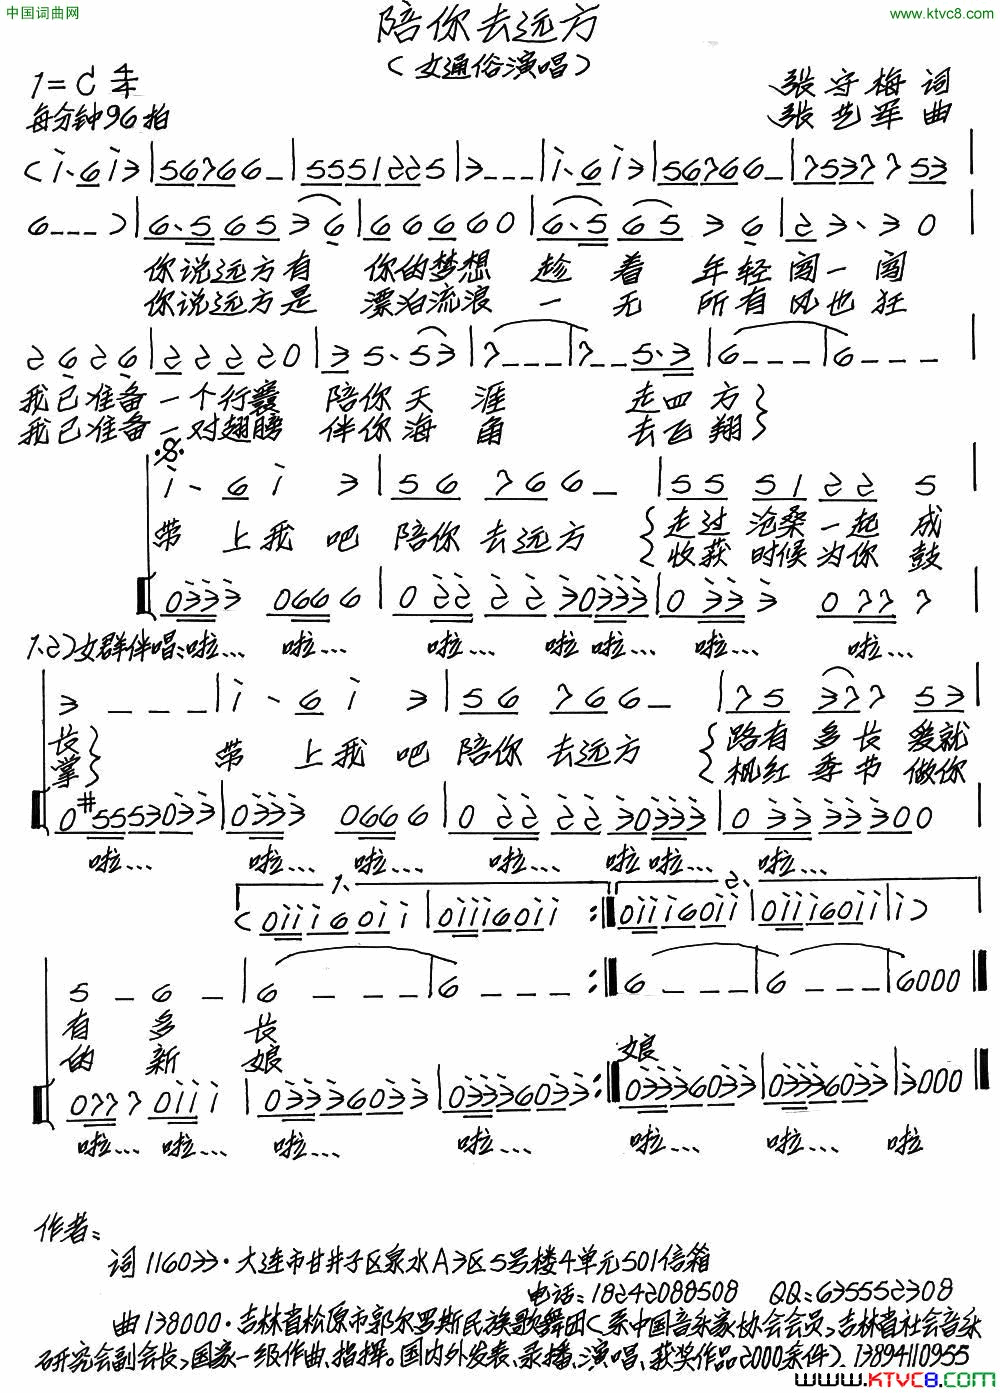 中国词曲网
www.ktvc8.com
陪你去远方
(女通俗演唱)
1=C 4/4
每分钟96拍
张守梅 词
张艺军 曲
(i·6i3|56766_|5551225|3___|i·6i3|56766_|7537753|
6___)|6·56536|666660|6·56536|233·30|
你说远方有 你的梦想 趁着年轻闯一闯
你说远方是 漂泊流浪 一无所有风也狂
2626|222220|35·53|7___|7__5·3|6___|6___|
我已准备一个行囊 陪你天涯 走四方
我已准备一对翅膀 伴你海角 去飞翔
i·6i3|56766_|5551225|
带上我吧陪你去远方 走过沧桑一起成
收获时候为你鼓
0333 0666|0222230333|0333 0777|
1、2)女群伴唱:啦… 啦… 啦… 啦啦… 啦… 啦…
3___|i·6i3|56766_|7537753|
长 带上我吧陪你去远方 路有多长爱就
掌 枫红季节做你
0#55530333|0333 0666|0222230333|03333300|
啦… 啦… 啦… 啦啦… 啦…
1、 2、
(0iii60ii|0iii60ii:‖0iii60ii|0iii60ii|i)
5_6_|6___|6___:‖6___|6___|6000‖
有多长
的新娘
娘
0777 0iii|03336033|03336033:‖03336033|03336033|3000‖
啦… 啦… 啦… 啦… 啦… 啦… 啦
作者:
词 116033·大连市甘井子区泉水A3区5号楼4单元501信箱
电话:18242088508 QQ:635552308
曲 138000·吉林省松原市郭尔罗斯民族歌舞团(系中国音乐家协会会员,吉林省社会音乐
研究会副会长,国家一级作曲、指挥。国内外发表、录播、演唱、获奖作品2000余件)、13894110955
www.KTVC8.com